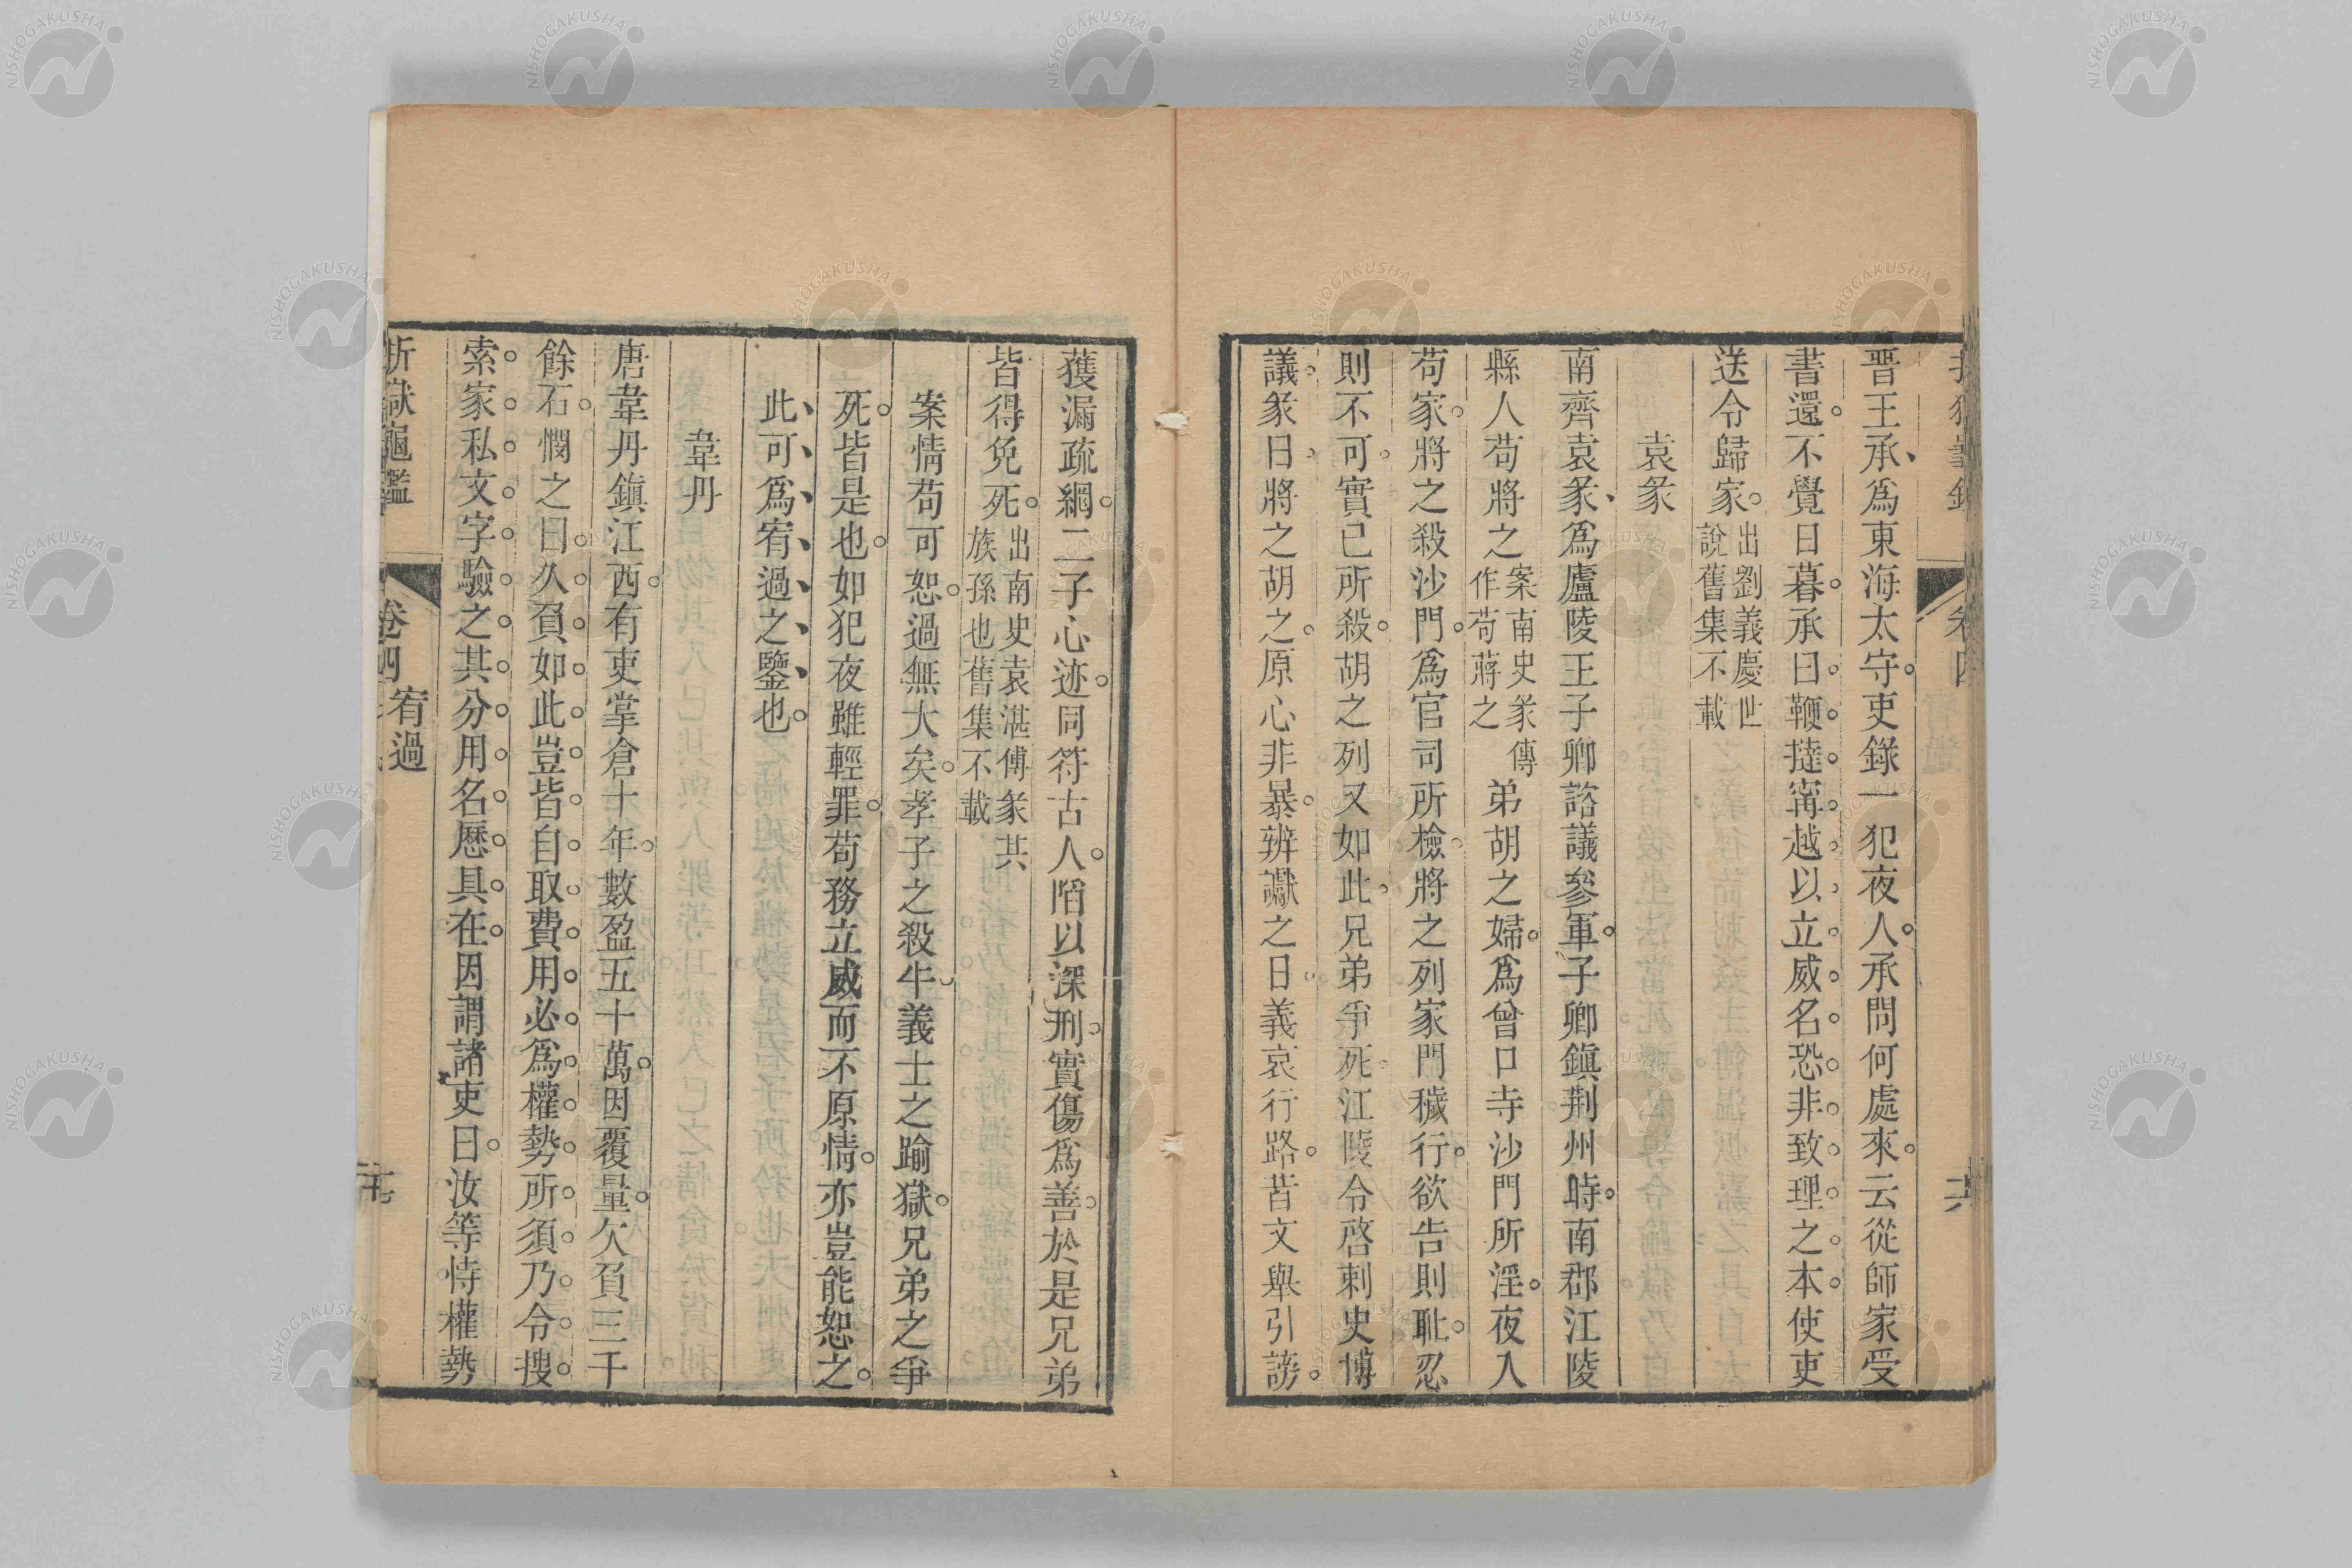 晉王承爲東海太守。吏錄一犯夜人。承問何處來。云從師家受
書還。不覺日暮。承曰。鞭撻甯越以立威名。恐非致理之本。使吏
送令歸家。出劉義慶世說舊集不載
袁彖
南齊袁彖爲廬陵王子卿諮議參軍。子卿鎮荆州時。南郡江陵
縣人苟將之案南史彖傳作苟蔣之弟胡之婦。爲曾口寺沙門所淫。夜入
苟家。將之殺沙門。爲官司所檢。將之列家門穢行。欲告則耻。忍
則不可。實已所殺。胡之列又如此。兄弟爭死。江陵令啓刺史博
議。彖曰。將之胡之。原心非暴。辨讞之日。義哀行路。昔文舉引謗。
獲漏疏網。二子心迹。同符古人。陷以深刑。實傷爲善。於是兄弟
皆得免死。出南史袁湛傳彖共族孫也舊集不載
案情苟可恕。過無大矣。孝子之殺牛。義士之踰獄。兄弟之爭
死。皆是也。如犯夜雖輕罪。苟務立威而不原情。亦豈能恕之。
此可爲宥過之鑒也。
韋丹
唐韋丹鎮江西。有吏掌倉十年。數盈五十萬。因覆量。欠負三千
餘石。憫之曰。久負如此。豈皆自取費用。必爲權勢所須。乃令搜
索家私文字驗之。其分用名歷具在。因謂諸吏曰。汝等恃權勢
折獄龜鑑
卷四 宥過